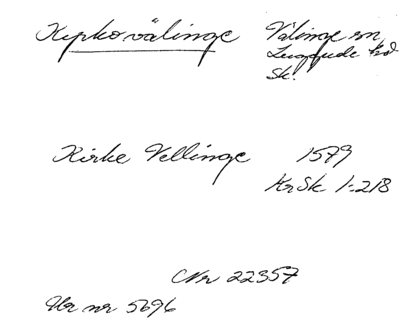 Kyrkovälinge Välinge sn,
Luggude hd
Sk.
Kirke Vellinge 1579
KrSk 1-218
CNr 22357
Ur nr 5696